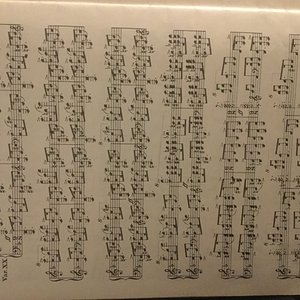 Var. XX